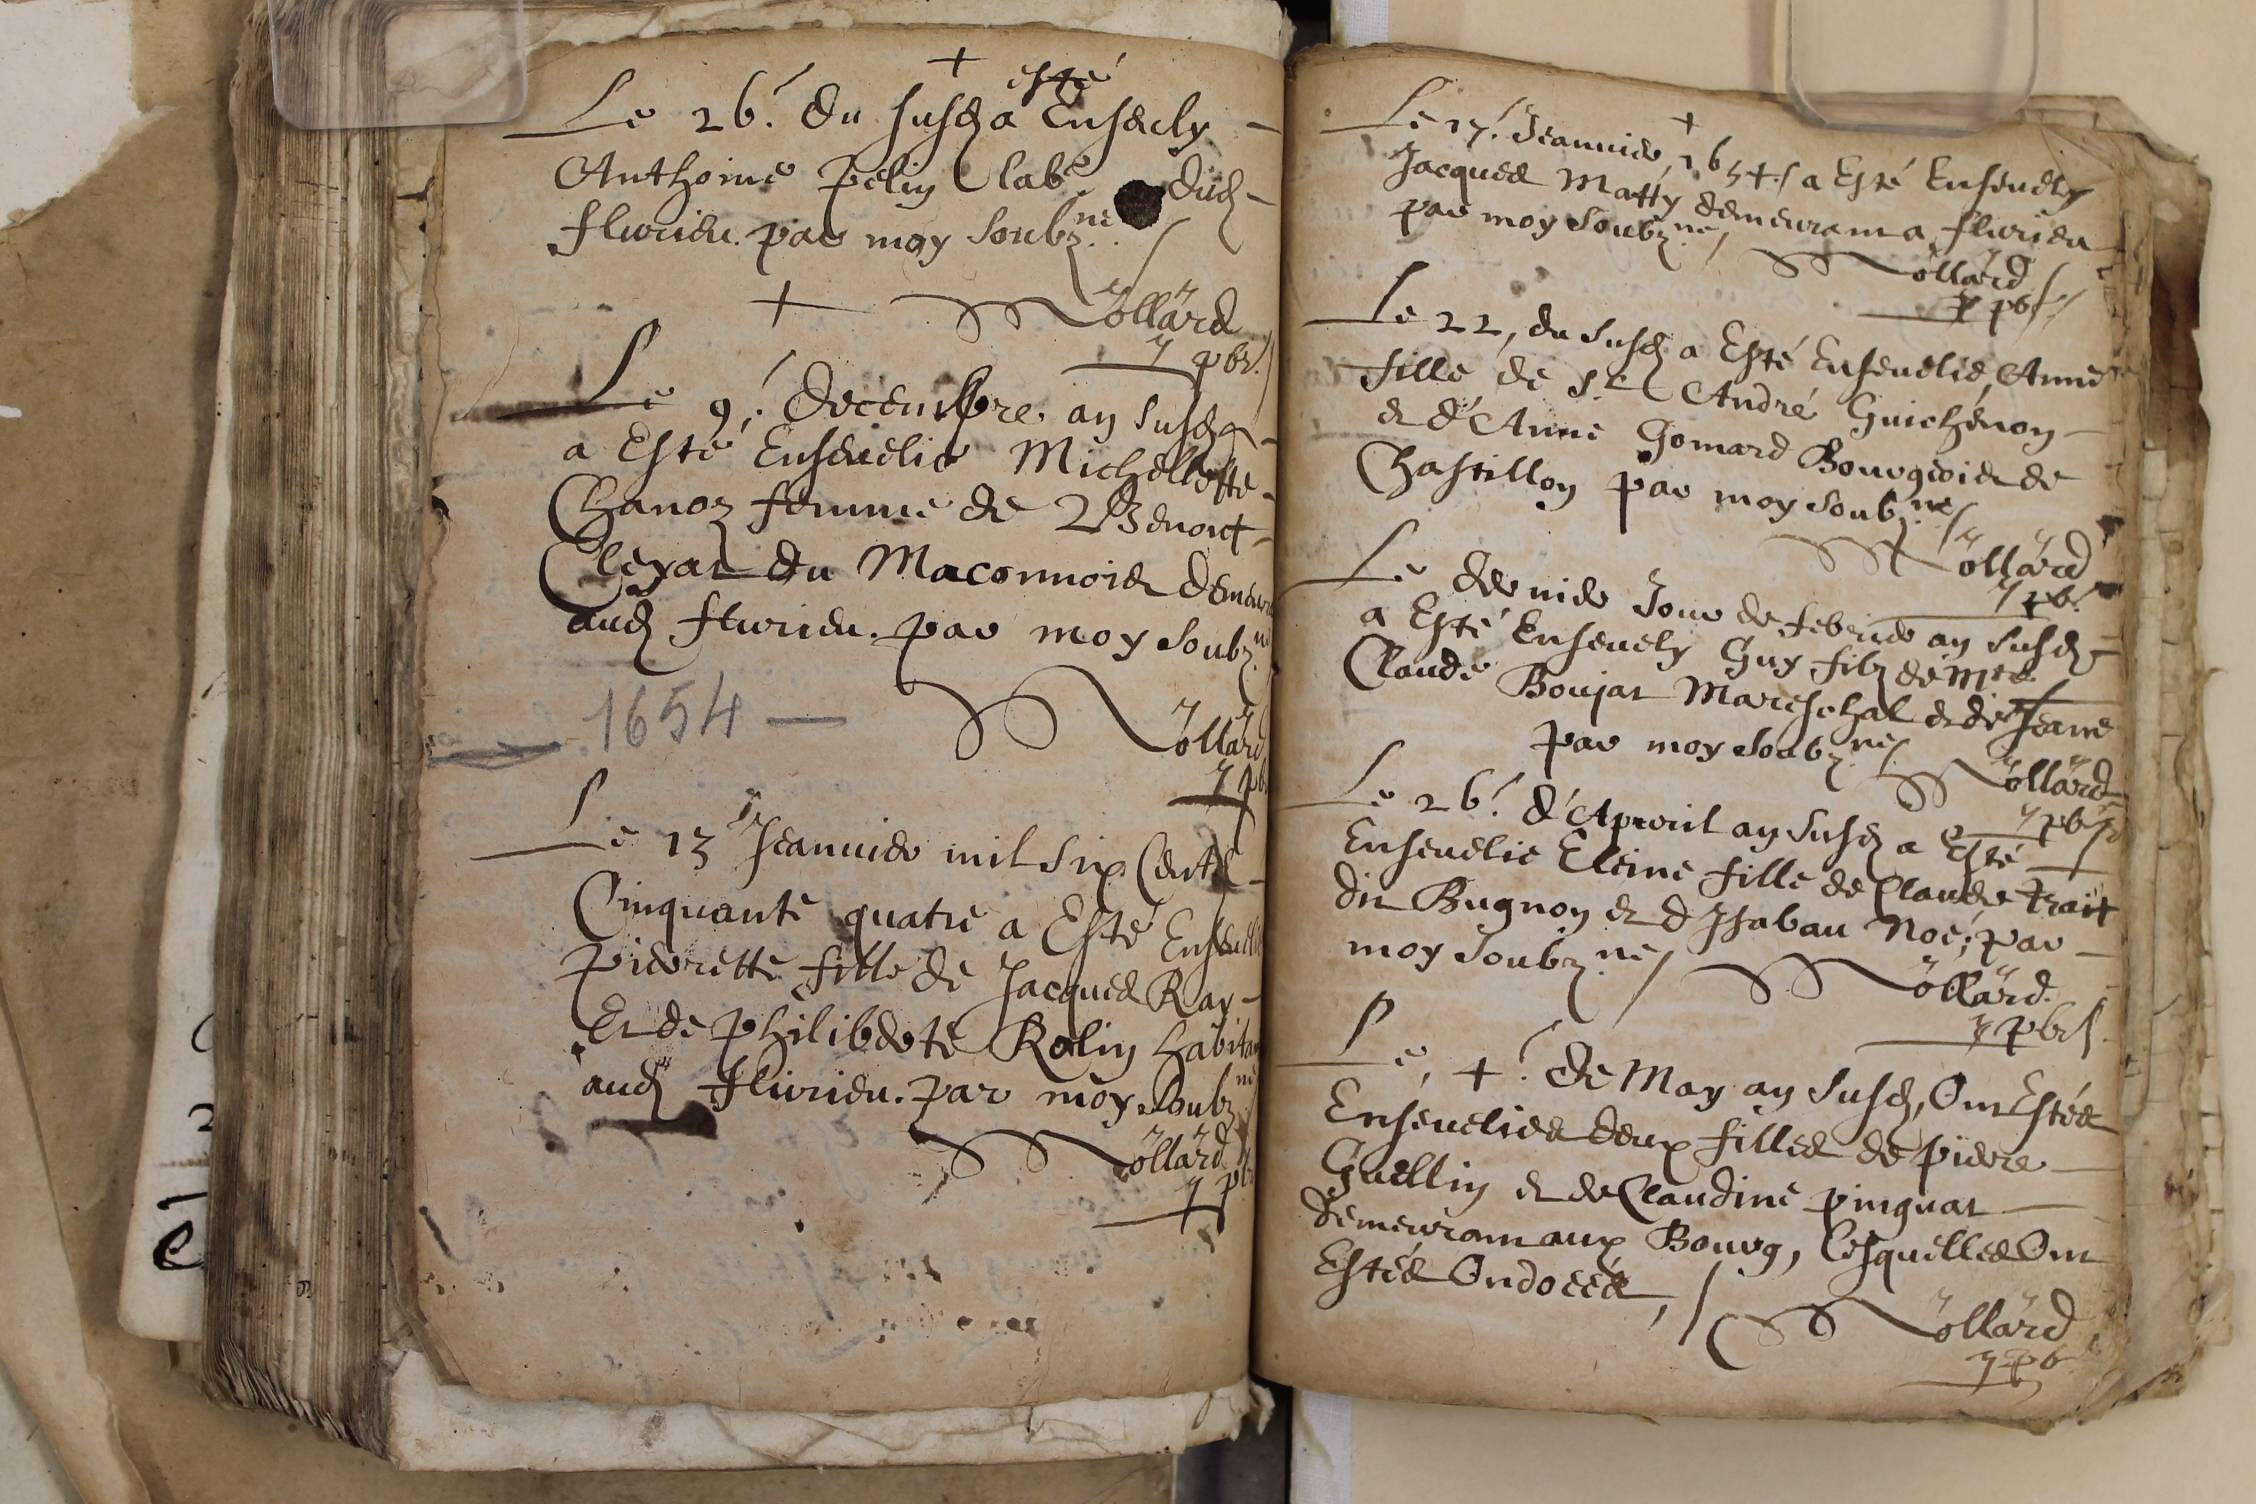 esté
Le 26. du susd a Ensevely
Anthoine pelin Clabe dud
flurieu. par moy soubzne.
Vollard
pbr.
Le 9. decembre an susd
a Esté Ensevelie Michellette
Chanoz femme de Benoict
Cleyat du Maconnois demeur
aud flurieu. par moy soubzne
1654
Vollard
pb
Le 13 Jeanvier mil six Cents
Cinquante quatre a Esté Ensevelie
pierrette fille de Jacques Ray
Et de philiberte Rolin habitan
aud flurieu. par moy soubzne
Vollard
pb
Le 17. Jeanvier 1654. a Esté Ensevely
Jacques Matty demeurant a flurieu
par moy soubzne
Vollard
pb
Le 22, du susd a Esté Ensevelie Anne
fille de sr André Guichenon
et d'Anne Gomard Bourgeois de
Chastillon par moy soubzne
Vollard
pb.
Le dernier Jour de febvrier an susd
a Esté Ensevely Guy filz de Mre
Claude Boujat Mareschal et de Jeane
par moy soubzne
Vollard
pb
Le 26. d'Apvril an susd a Esté
Ensevelie Eleine fille de Claude trait
dit Bugnon et d Isabau Noé; par
moy soubzne
Vollard.
pbr
Le, 4. de May an susd, Ont Estés
Ensevelies deux filles de pierre
Guellin et de Claudine pinguat
demeurant aux Bourg, lesquelles Ont
Estés Ondoeés,
Vollard
pb